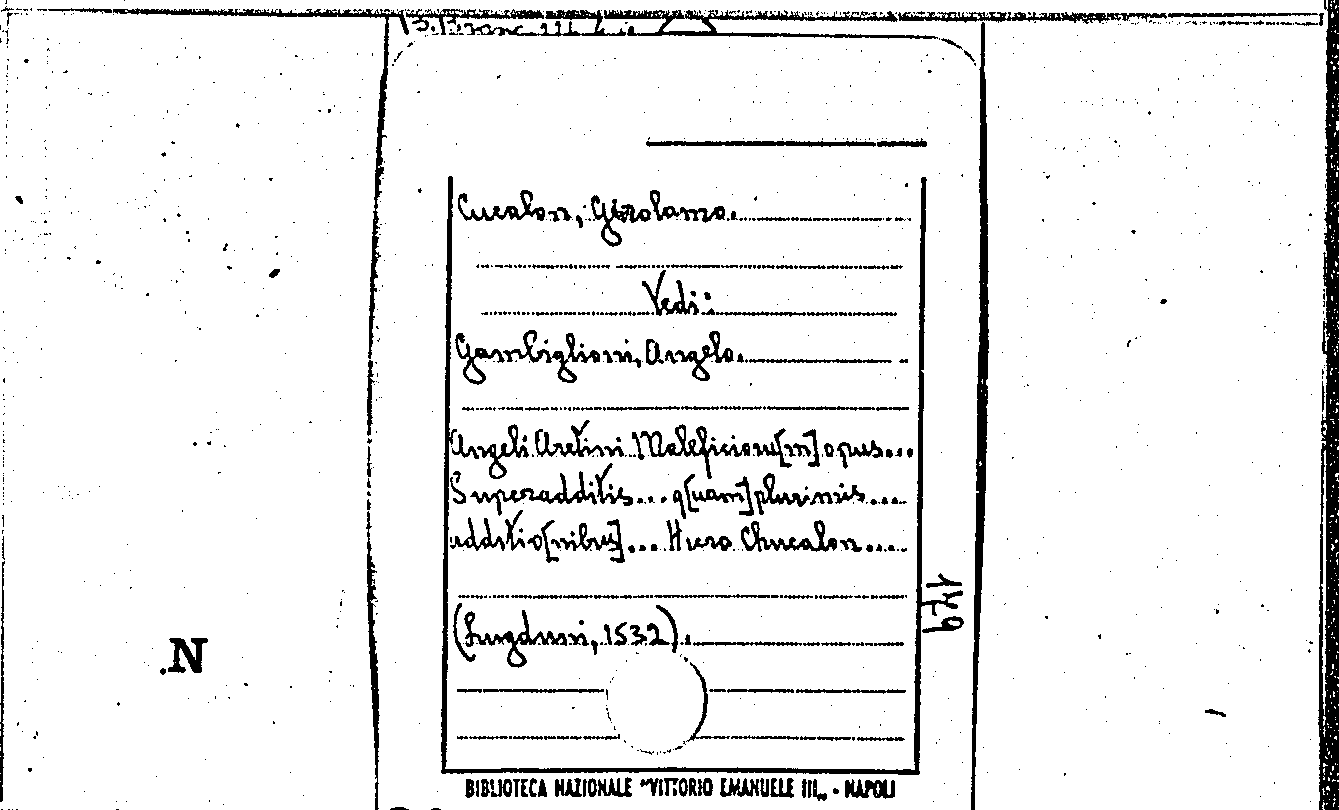 Cucalon, Girolamo.
Vedi:
Gambiglioni, Angelo.
Angeli Aretini Maleficioru[m] opus...
Superadditis... q[uam] plurimis...
additio[nibus]... Hiero Chucalon...
(Lugduni, 1532).
179
N.
BIBLIOTECA NAZIONALE "VITTORIO EMANUELE III„ - NAPOLI